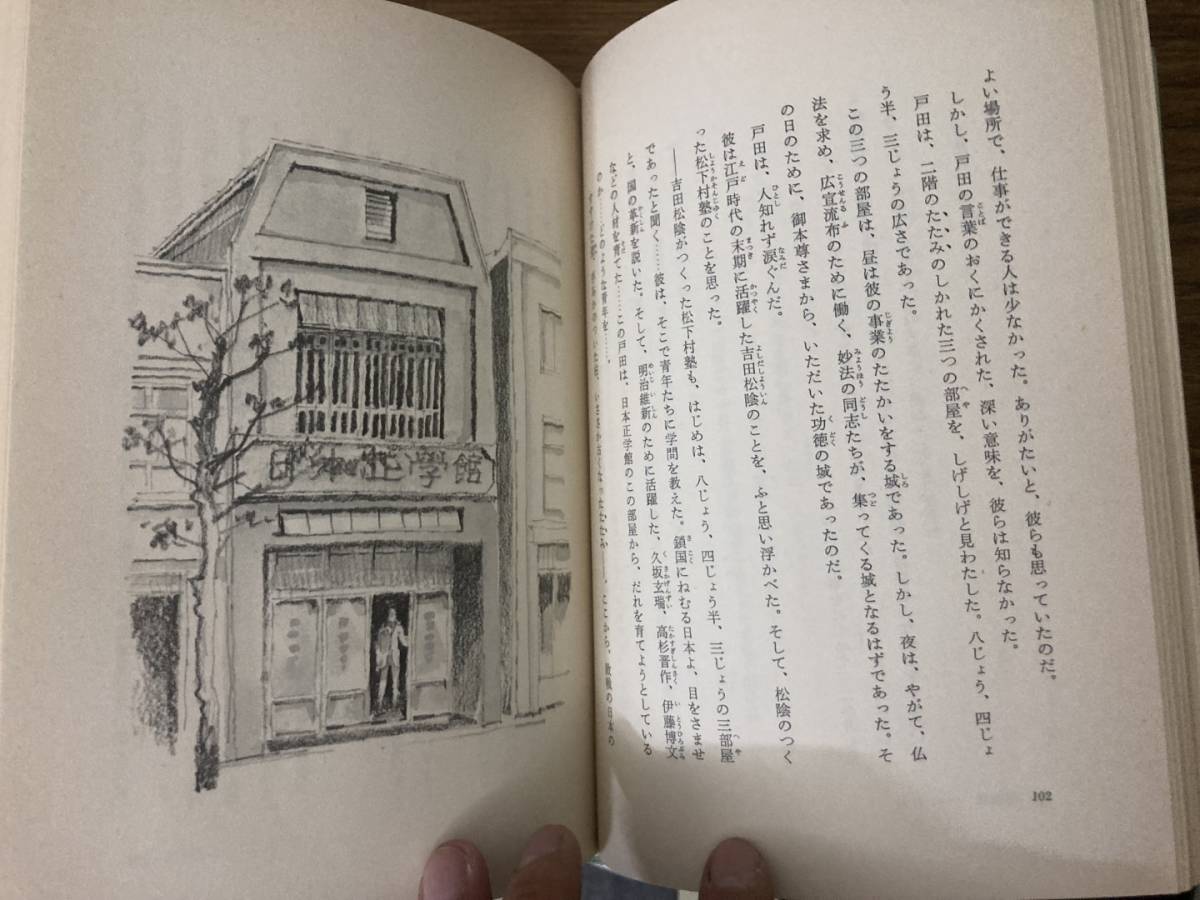 よい場所で、仕事ができる人は少なかった。ありがたいと、彼らも思っていたのだ。
しかし、戸田の言葉のおくにかくされた、深い意味を、彼らは知らなかった。
戸田は、二階のたたみのしかれた三つの部屋を、しげしげと見わたした。八じょう、四じょ
う半、三じょうの広さであった。
この三つの部屋は、昼は彼の事業のたたかいをする城であった。しかし、夜は、やがて、仏
法を求め、広宣流布のために働く、妙法の同志たちが、集ってくる城となるはずであった。そ
の日のために、御本尊さまから、いただいた功徳の城であったのだ。
戸田は、人知れず涙ぐんだ。
彼は江戸時代の末期に活躍した吉田松陰のことを、ふと思い浮かべた。そして、松陰のつく
った松下村塾のことを思った。
――吉田松陰がつくった松下村塾も、はじめは、八じょう、四じょう半、三じょうの三部屋
であったと聞く……彼は、そこで青年たちに学問を教えた。鎖国にねむる日本よ、目をさませ
と、国の革新を説いた。そして、明治維新のために活躍した、久坂玄瑞、高杉晋作、伊藤博文
などの人材を育てた……この戸田は、日本正学館のこの部屋から、だれを育てようとしている
のか……どのような青年を……。
から、敗戦の日本の
102
日本正學館